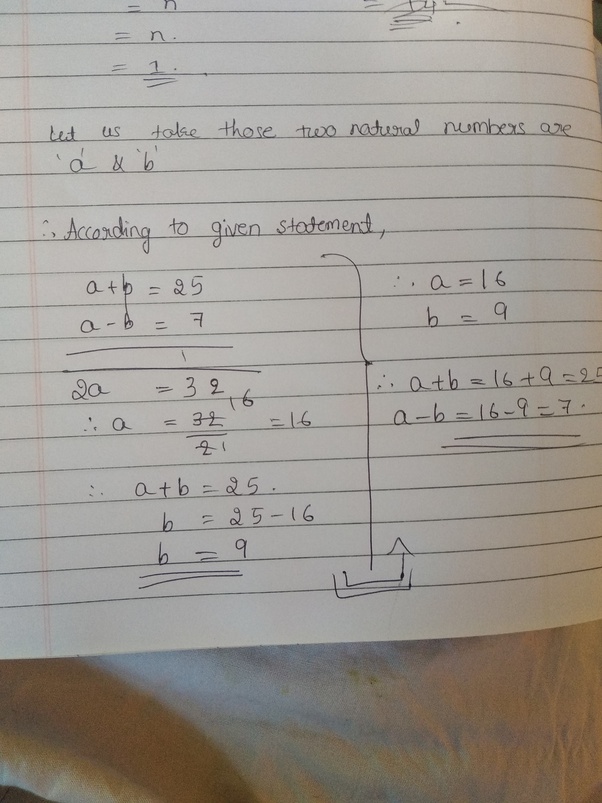 = n
= n.
= 1.
Let us take those two natural numbers are
'a' & 'b'
∴ According to given statement,
a+b = 25
a-b = 7
2a = 32
∴ a = 32/2 = 16
16
1
∴ a+b = 25.
b = 25-16
b = 9
∴ a = 16
b = 9
∴ a+b = 16+9 = 25
a-b = 16-9 = 7.